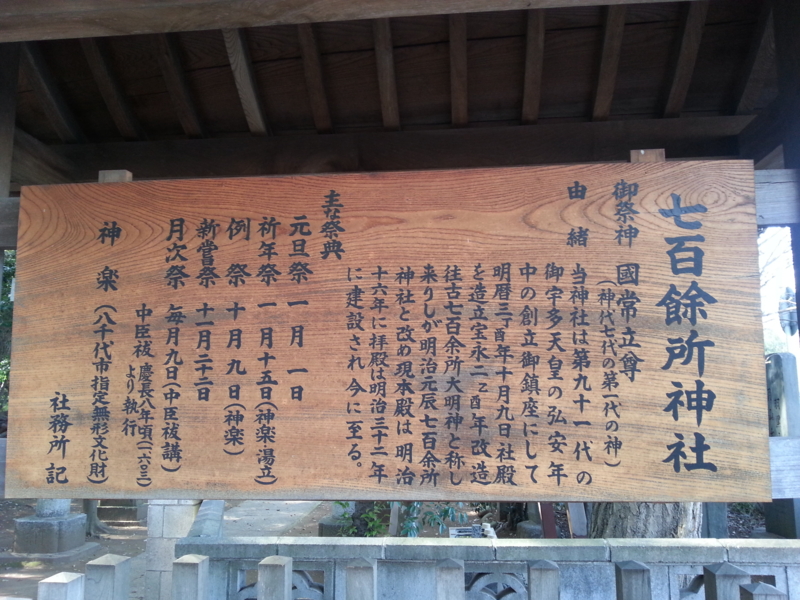 七百餘所神社
御祭神 國常立尊
(神代七代の第一代の神)
由緒 当神社は第九十一代の
御宇多天皇の弘安年
中の創立御鎮座にして
明暦三丁酉年十月九日社殿
を造立宝永二乙酉年改造
往古七百余所大明神と称し
来りしが明治元辰七百余所
神社と改め現本殿は明治
十六年に拝殿は明治三十二年
に建設され今に至る。
主な祭典
元旦祭 一月一日
祈年祭 一月十五日(神楽湯立)
例祭 十月九日(神楽)
新嘗祭 十一月二十二日
月次祭 毎月九日(中臣祓講)
中臣祓 慶長八年頃(一六〇三)
より執行
神楽 (八千代市指定無形文化財)
社務所 記